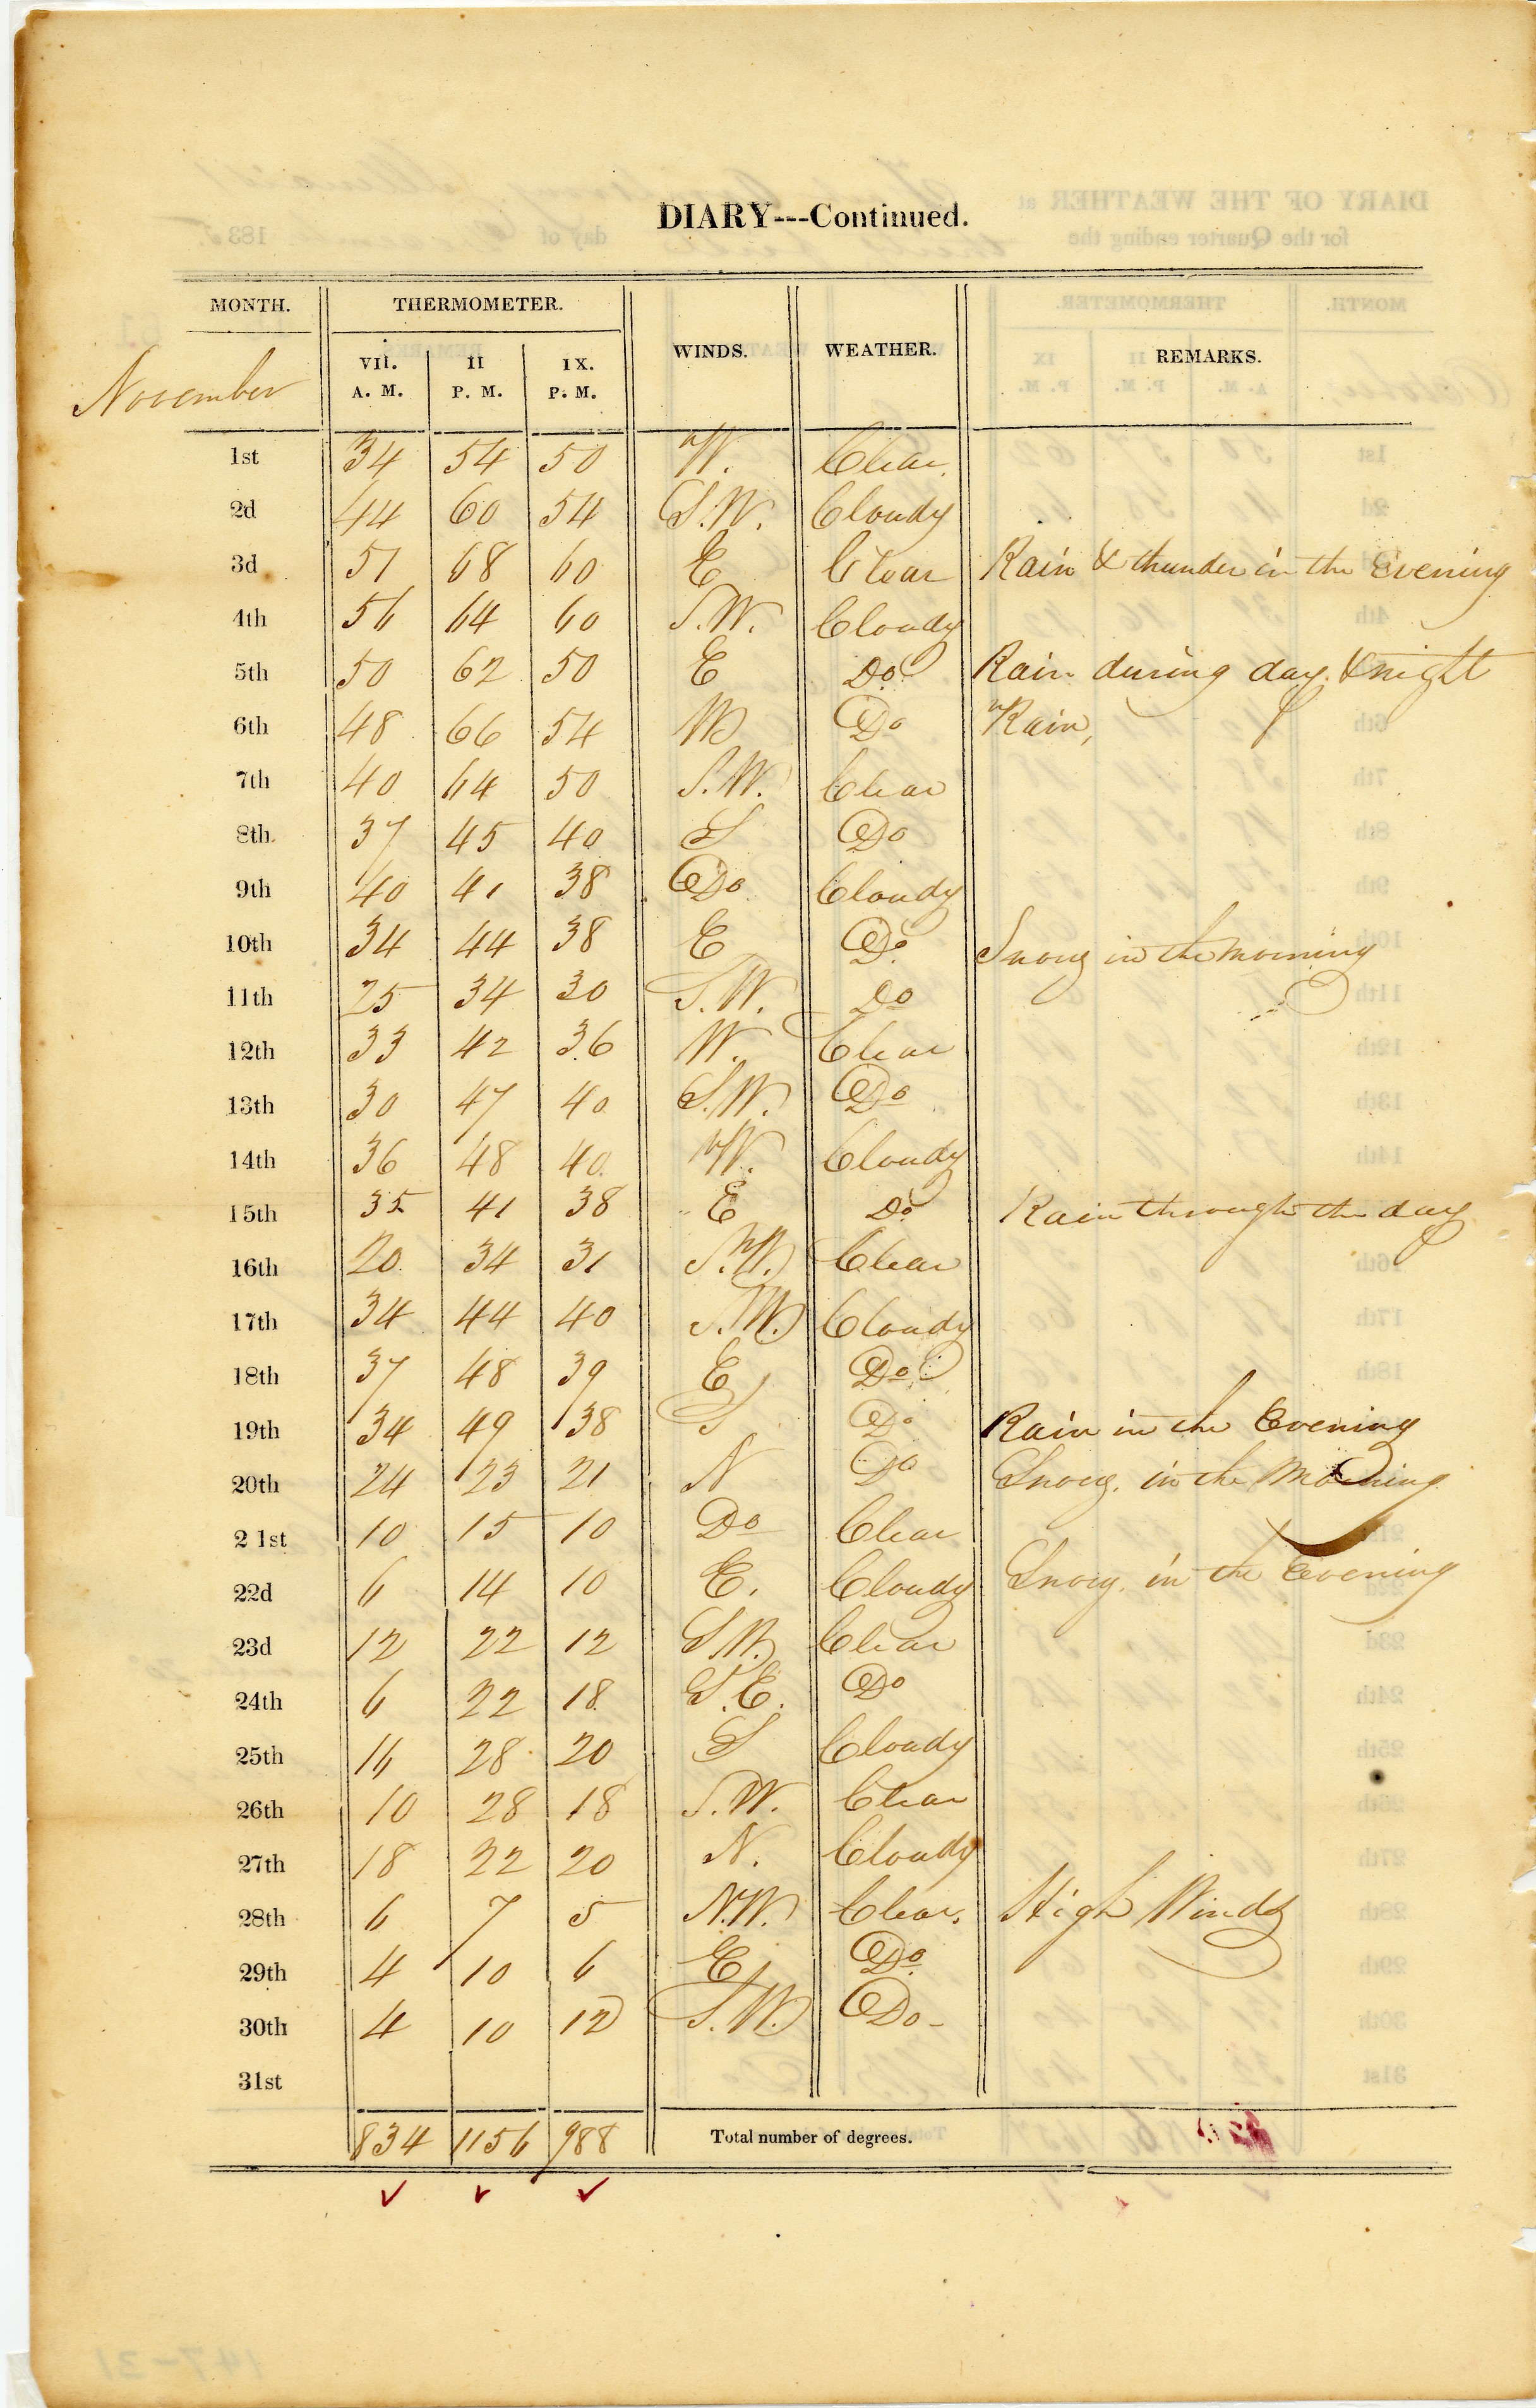 DIARY---Continued.
MONTH. THERMOMETER. WINDS. WEATHER. REMARKS.
VII. A. M. II P. M. IX. P. M.
November
1st 34 54 50 W. Clear.
2d 44 60 54 S.W. Cloudy
3d 51 68 60 E Clear Rain & thunder in the Evening
4th 56 64 60 S.W. Cloudy
5th 50 62 50 E Do. Rain during day & night
6th 48 66 54 W Do Rain,
7th 40 64 50 S.W. Clear
8th 37 45 40 S Do
9th 40 41 38 Do Cloudy
10th 34 44 38 E Do. Snowy in the morning
11th 25 34 30 S.W. Do
12th 33 42 36 W. Clear
13th 30 47 40 S.W. Do
14th 36 48 40 W. Cloudy
15th 35 41 38 E Do. Rain through the day
16th 20 34 31 S.W. Clear
17th 34 44 40 S.W. Cloudy
18th 37 48 39 E Do
19th 34 49 38 S Do Rain in the Evening
20th 24 23 21 N Do Snowy, in the Morning
21st 10 15 10 Do Clear
22d 6 14 10 E. Cloudy Snowy, in the Evening
23d 12 22 12 S.W. Clear
24th 6 22 18 S.E. Do
25th 16 28 20 S Cloudy
26th 10 28 18 S.W. Clear
27th 18 22 20 N. Cloudy
28th 6 7 5 N.W. Clear. High Winds
29th 4 10 6 E Do.
30th 4 10 12 S.W. Do
31st
834 1156 988 Total number of degrees.